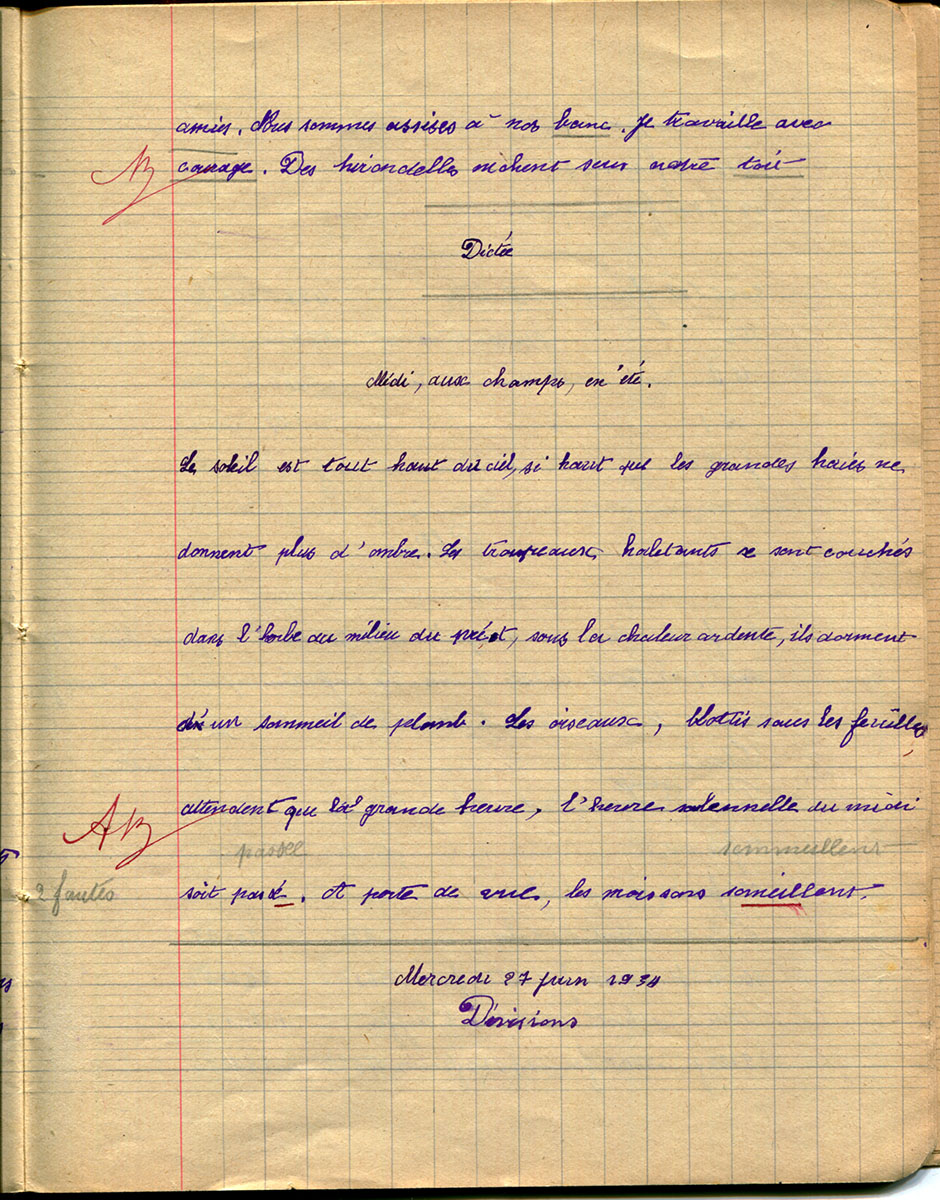 amies. Nous sommes assises à nos banc. Je travaille avec
courage. Des hirondelles nichent sous notre toit
Dictée
Midi, aux champs, en été.
Le soleil est tout haut du ciel, si haut que les grandes haies ne
donnent plus d'ombre. Les troupeaux haletants se sont couchés
dans l'herbe au milieu du pré et, sous la chaleur ardente, ils dorment
d'un sommeil de plomb. Les oiseaux, blottis sous les feuilles,
attendent que la grande heure, l'heure solennelle du midi
passée sommeillent
2 fautes soit passé. A perte de vue, les moissons someillent.
Mercredi 27 juin 1934
Divisions